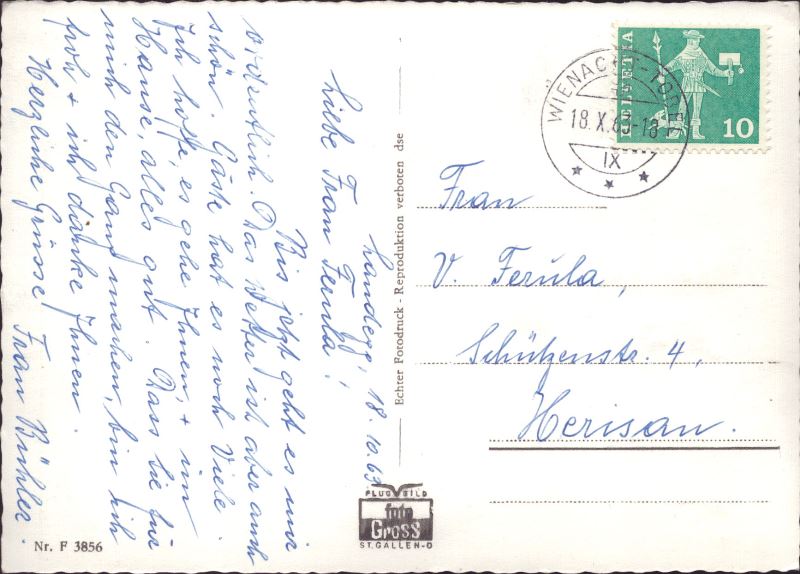 Landegg, 18.10.63.
Liebe Frau Ferula!
Bis jetzt geht es mir
ordentlich. Das Wetter ist aber auch
schön. Gäste hat es noch Viele.
Ich hoffe, es gehe Ihnen, + im
Hause, alles gut. Dass Sie für
mich den Gang machen, bin ich
froh + ich danke Ihnen.
Herzliche Grüsse Frau Bühler.
Nr. F 3856
Echter Fotodruck - Reproduktion verboten dse
FLUG BILD
foto
Gross
ST. GALLEN-O
HELVETIA
10
WIENACHT-TOBEL
18.X.63-18
IX
Frau
V. Ferula,
Schützenstr. 4,
Herisau.